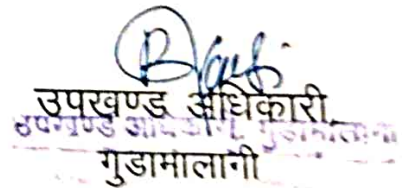 उपखण्ड अधिकारी
उपखण्ड अधिकारी, गुडामालानी
गुडामालानी